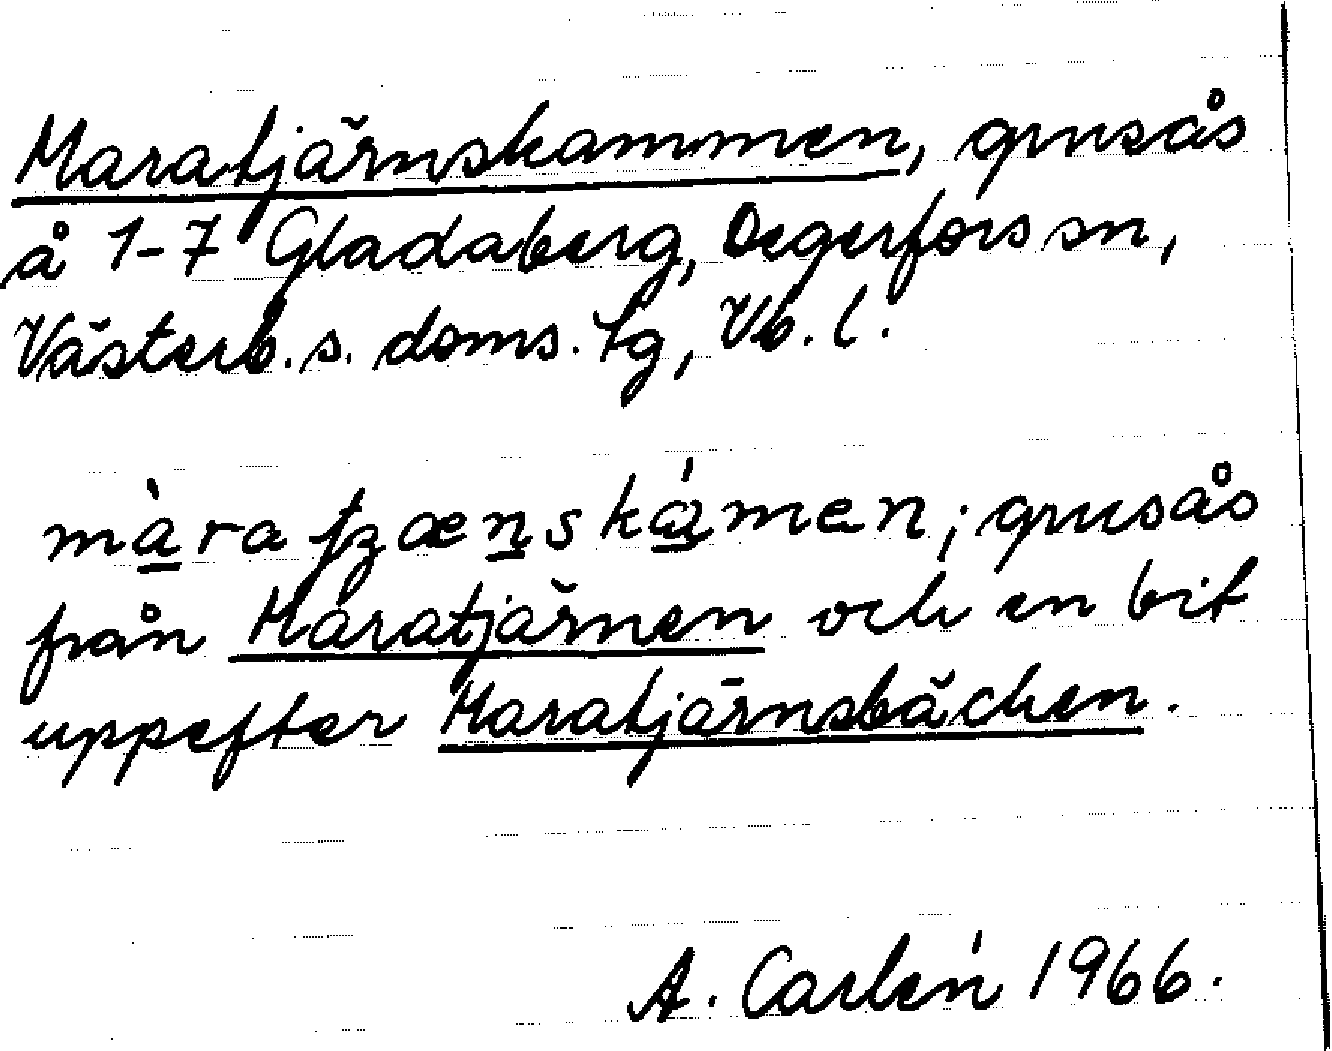 Maratjärnskammen, grusås
å 1-7 Gladaberg, Degerfors sn,
Västerb. s. doms. tg, Vb. l.
màra ƫʒænskámen; grusås
från Maratjärnen och en bit
uppefter Maratjärnsbäcken.
A. Carlén 1966.